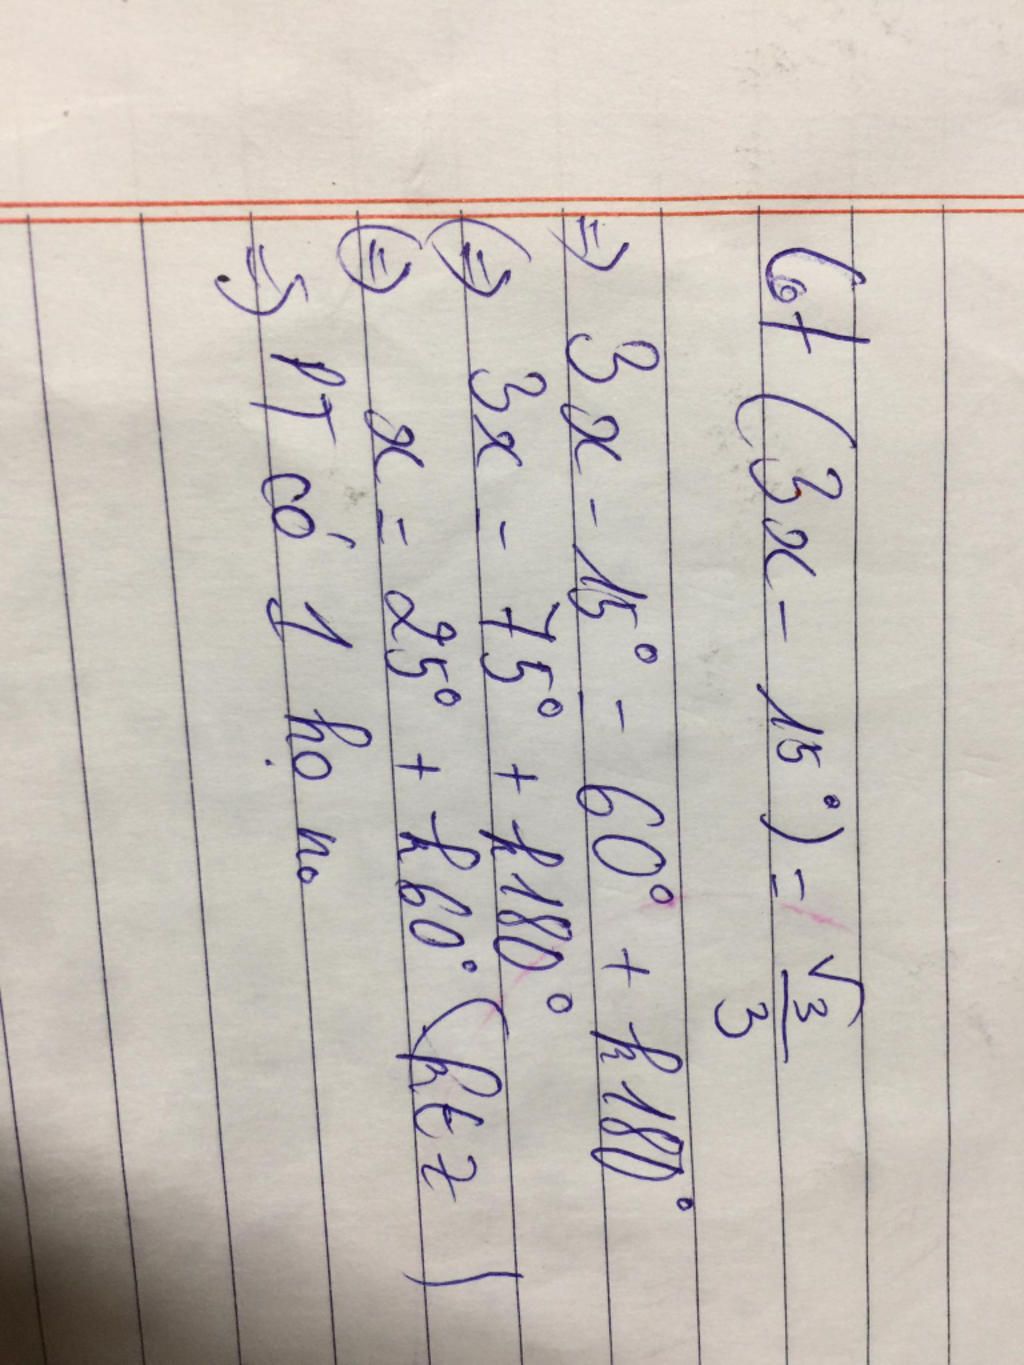 Cot (3x - 15°) = √3/3
=> 3x - 15° = 60° + k180°
(=> 3x = 75° + k180°
(=> x = 25° + k60° (k∈z)
=> PT có 1 họ no